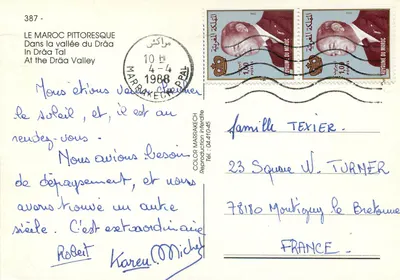 387 -
LE MAROC PITTORESQUE
Dans la vallée du Drâa
In Drâa Tal
At the Drâa Valley
مراكش
10 H
4-4
1988
MARRAKECH PPAL
المملكة المغربية
1,00
ROYAUME DU MAROC
المملكة المغربية
1,00
ROYAUME DU MAROC
Nous étions venus chercher
le soleil, et, il est au
rendez-vous.
Nous avions besoin
de dépaysement, et nous
avons trouvé un autre
siècle. C'est extraordinaire
Robert
Karen
Michel
COLOR MARRAKECH
Reproduction interdite
Tél. : 04-410-45
famille TEXIER.
23 Square W. TURNER
78180 Montigny le Bretonneux
FRANCE.